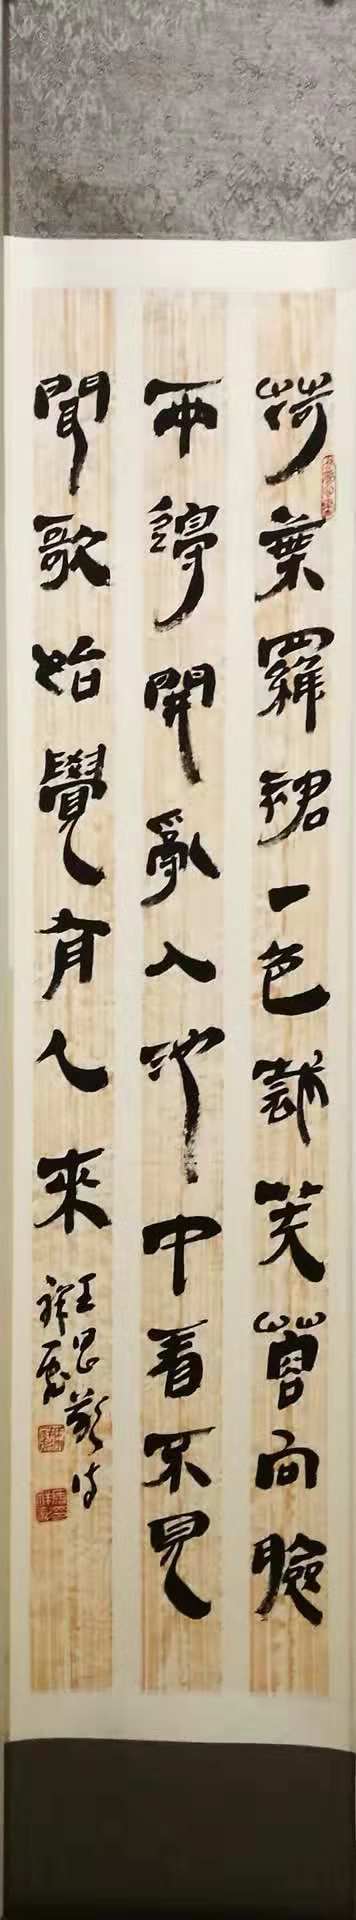 荷葉羅裙一色裁芙蓉向臉
兩邊開亂入池中看不見
聞歌始覺有人來
王昌齡詩
祥